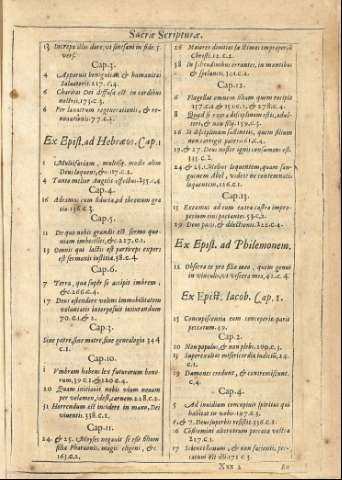 Sacræ Scripturæ.
13 Increpa illos dure, vt sinesani in fide
Cap. 3.
4 Apparuit benignitas & humanitas
Saluatoris
6 Charitas Dei diffusa est in cordibus
nostris, 171. c. 3.
6 Per lauacrum regenerationis, & re-
nouationis. 77. c. 1.
Ex Epist. ad Hebræos. Cap. 1
1 Multifariam, multisq. modis olim
Deus loquens, &c. 167. c. 2.
4 Tanto melior Angelis effectus. 255. c. 4
Cap. 4.
16 Adeamus cum fiducia, ad thronum gra
tiæ 156. c. 3.
Cap. 5.
11 De quo nobis grandis est sermo quo-
niam imbecilles, &c. 227. c. 1.
13 Omnis qui lactis est particeps exper s
est sermonis iustitiæ, 38. c. 4.
Cap. 6.
7 Terra, quæ super se accipit imbrem,
&c. 266. c. 4.
17 Deus ostendere volens immobilitatem
voluntatis interposuit iusiurandum
70. c. 1. & 2.
Cap. 3.
Sine patre, sine matre, sine genealogia 344
c. 1.
Cap. 10.
1 Vmbram habens lex futurorum bono-
rum, 39. c. 1. & 120. c. 4.
20 Quam initiauit nobis viam nouam
per velamen, idest, carnem. 228. c. 2.
31 Horrendum est incidere in manu, Dei
viuentis. 338. c. 1.
Cap. 11.
24 & 25. Moyses negauit se esse filium
filiæ Pharaonis, magis eligens, &c
163. c. 1.
26 Maiores diuitias
Christi. 12. c. 2.
38 In solitudinibus errantes, in montibus
& speluncis. 301. c. 1.
Cap. 12.
6 Flagellat omnem filium quem recipit
157. c. 4
8 Quod si extra disciplinam estis, adul-
teri, & non filij. 159. c. 3.
26 &
non corrigit pater 161. c. 4.
29 & 27. Deus noster ignis consumens est.
315. c. 2.
24 & 25. Melius loquentem, quam san-
guinem Abel, videte ne contemnatis
loquentem, 126. c. 1.
Cap. 13.
13 Exeamus ad eum extra castra impro-
perium eius portantes. 53. c. 2.
20 Deus pacis, & dilectionis. 222. c. 4.
Ex Epist. ad Philemonem.
11 Obsecro te pro filio meo, quem genui
in vinculis, vt viscera mea, 42. c. 4.
Ex Epist. Iacob. Cap. 1.
15 Concupiscentia cum conceperit parit
peccatum. 49.
Cap. 2.
10 Non populus, & non plebs. 209. c. 3.
13 Superexaltat misericordia iudicio, 24.
c. 1.
19 Dæmones credunt, & contremiscunt.
c. 4.
Cap. 4.
5 Ad inuidiam concupiscit spiritus qui
habitat in vobis. 197. c. 3.
6, & 7. Deus superbis resistit 336. c. 1.
16 Confitemini alterutrum peccata vestra
217. c. 3.
17 Scienti bonum, & non facienti, pec-
catum est illi 171 c. 3
Xxx 2